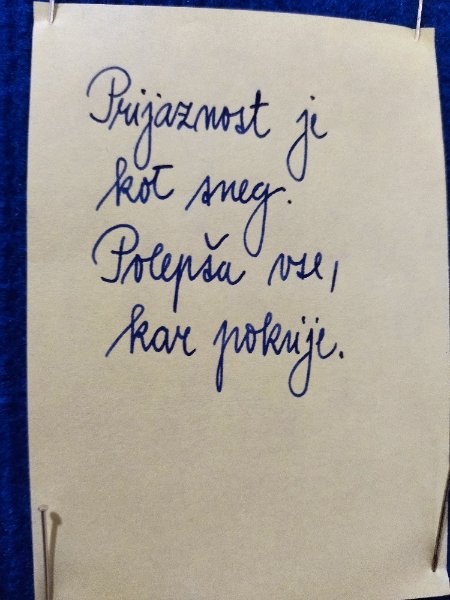 Prijaznost je
kot sneg.
Polepša vse,
kar pokrije.